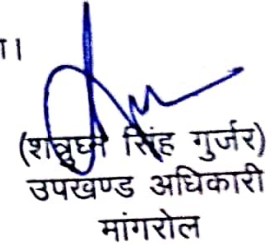 ा।
(शत्रुघ्न सिंह गुर्जर)
उपखण्ड अधिकारी
मांगरोल